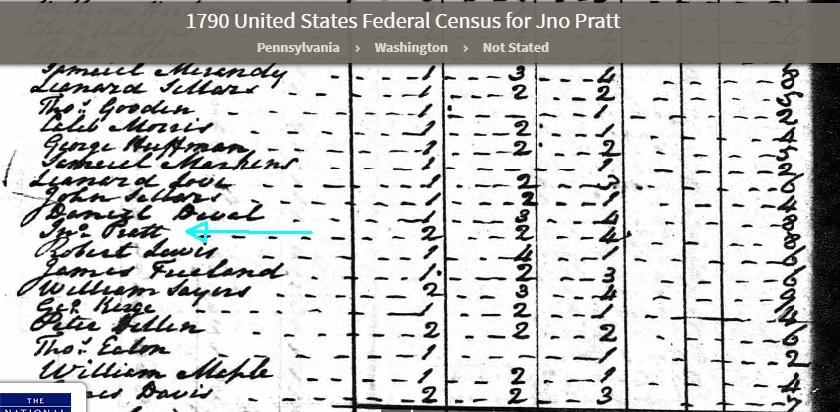 1790 United States Federal Census for Jno Pratt
Pennsylvania > Washington > Not Stated
Samuel Merandy 1 3 4 8
Leonard Sellars 1 2 2
Thos. Gooden 1 1 2
Caleb Morris 1 2 1 4
George Huffman 1 2 2
Samuel Mankins 1 1 2
Leonard Love 1 2 3 6
John Sellars 1 2 1 4
Daniel Deval 1 3 4 8
Jno. Pratt 2 2 4 8
Robert Lewis 1 4 1 6
James Freeland 1 2 3 6
William Sayers 2 3 4 9
Geo. Kerge 1 2 1 4
Peter Hellen 2 2 2 6
Thos. Eaton 1 1 2
William Meple 1 2 1 4
Davis 2 2 3
THE
NATIONAL